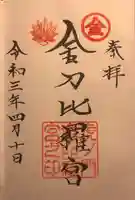 奉拝
金
金刀比羅宮
令和三年四月十日